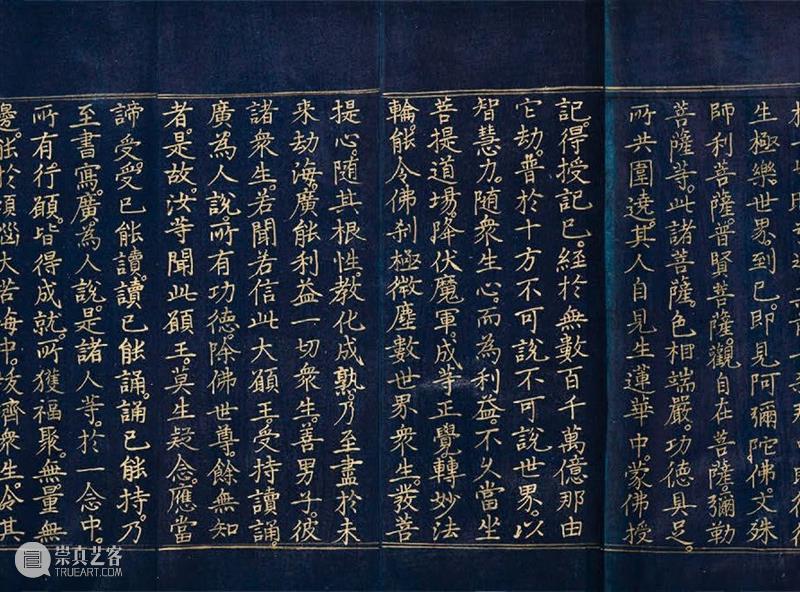 生極樂世界。到已。即見阿彌陀佛。文殊
師利菩薩。普賢菩薩。觀自在菩薩。彌勒
菩薩等。此諸菩薩。色相端嚴。功德具足。
所共圍遶。其人自見生蓮華中。蒙佛授
記。得授記已。經於無數百千萬億那由
它劫。普於十方不可說不可說世界。以
智慧力。隨衆生心。而為利益。不久當坐
菩提道場。降伏魔軍。成等正覺。轉妙法
輪。能令佛刹極微塵數世界衆生。發菩
提心。隨其根性。教化成熟。乃至盡於未
來劫海。廣能利益一切衆生。善男子。彼
諸衆生。若聞若信此大願王。受持讀誦。
廣為人說。所有功德。除佛世尊。餘無知
者。是故。汝等聞此願王。莫生疑念。應當
諦受。受已能讀。讀已能誦。誦已能持。乃
至書寫。廣為人說。是諸人等。於一念中。
所有行願。皆得成就。所獲福聚。無量無
邊。能於煩惱大苦海中。拔濟衆生。令其
崇真艺客
TRUEART.COM